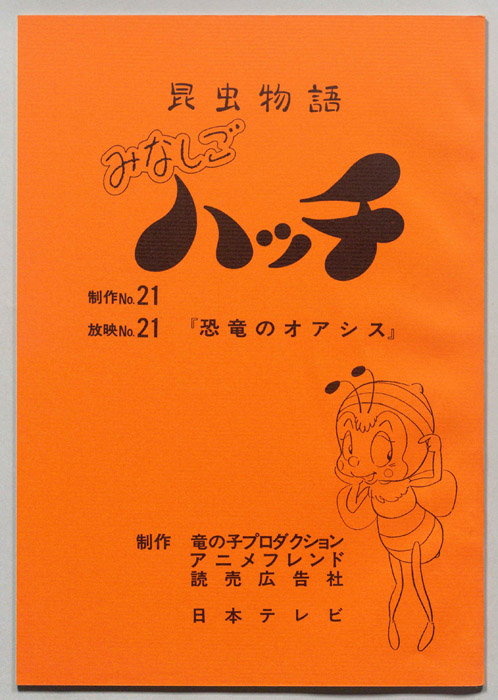 昆虫物語
みなしご
ハッチ
制作No.21
放映No.21 『恐竜のオアシス』
制作 竜の子プロダクション
アニメフレンド
読売広告社
日本テレビ